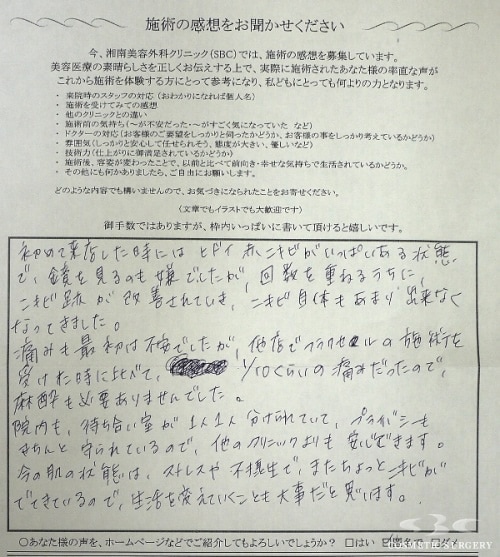 施術の感想をお聞かせください
今、湘南美容外科クリニック(SBC)では、施術の感想を募集しています。
美容医療の素晴らしさを正しくお伝えする上で、実際に施術されたあなた様の率直な声が
これから施術を体験する方にとって参考になり、私どもにとっても何よりの力となります。
・ 来院時のスタッフの対応（おわかりになれば個人名）
・ 施術を受けてみての感想
・ 他のクリニックとの違い
・ 施術前の気持ち（～が不安だった・～がすごく気になっていた など）
・ ドクターの対応（お客様のご要望をしっかりと伺ったかどうか、お客様の事をしっかり考えているかどうか）
・ 雰囲気（しっかりと安心して任せられそう、態度が大きい、優しいなど）
・ 技術力（仕上がりに御満足されているかどうか）
・ 施術後、容姿が変わったことで、以前と比べて前向き・幸せな気持ちで生活されているかどうか。
・ その他にも何かありましたら、ご自由にお願いします。
どのような内容でも構いませんので、お気づきになられたことをお寄せください。
（文章でもイラストでも大歓迎です）
御手数ではありますが、枠内いっぱいに書いて頂けると嬉しいです。
初めて来店した時には ヒドイ 赤ニキビがいっぱいある状態
で、鏡を見るのも嫌でしたが、回数を重ねるうちに、
ニキビ跡が改善されていき、ニキビ自体もあまり出来なく
なってきました。
痛みも最初は不安でしたが、他店でフラクセルの施術を
受けた時に比べて、 1/10くらいの痛みだったので、
麻酔も必要ありませんでした。
院内も、待ち合い室が1人1人分けられていて、プライバシーも
きちんと守られているので、他のクリニックよりも安心できます。
今の肌の状態は、ストレスや不摂生で、またちょっとニキビが
でてきているので、生活を変えていくことも大事だと思います。
○あなた様の声を、ホームページなどでご紹介してもよろしいでしょうか？ □はい
SBC
COSMETIC SURGERY